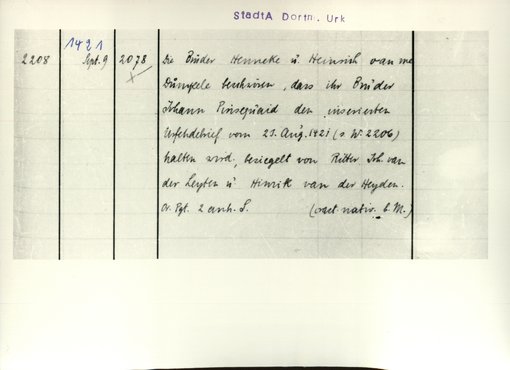 StadtA Dortm. Urk
1421
2208 Sept. 9 2078 Die Brüder Henneke u. Heinrich van me
beschwören, dass ihr Bruder
Johann den inserierten
Urfehdebrief vom 23. Aug. 1421 (s. Nr. 2206)
halten wird, besiegelt von Ritter Joh. van
der Leyten u. Hinrik van der Heyden.
Or. Pgt. 2 anh. S. (oact. nativ. b. M.)